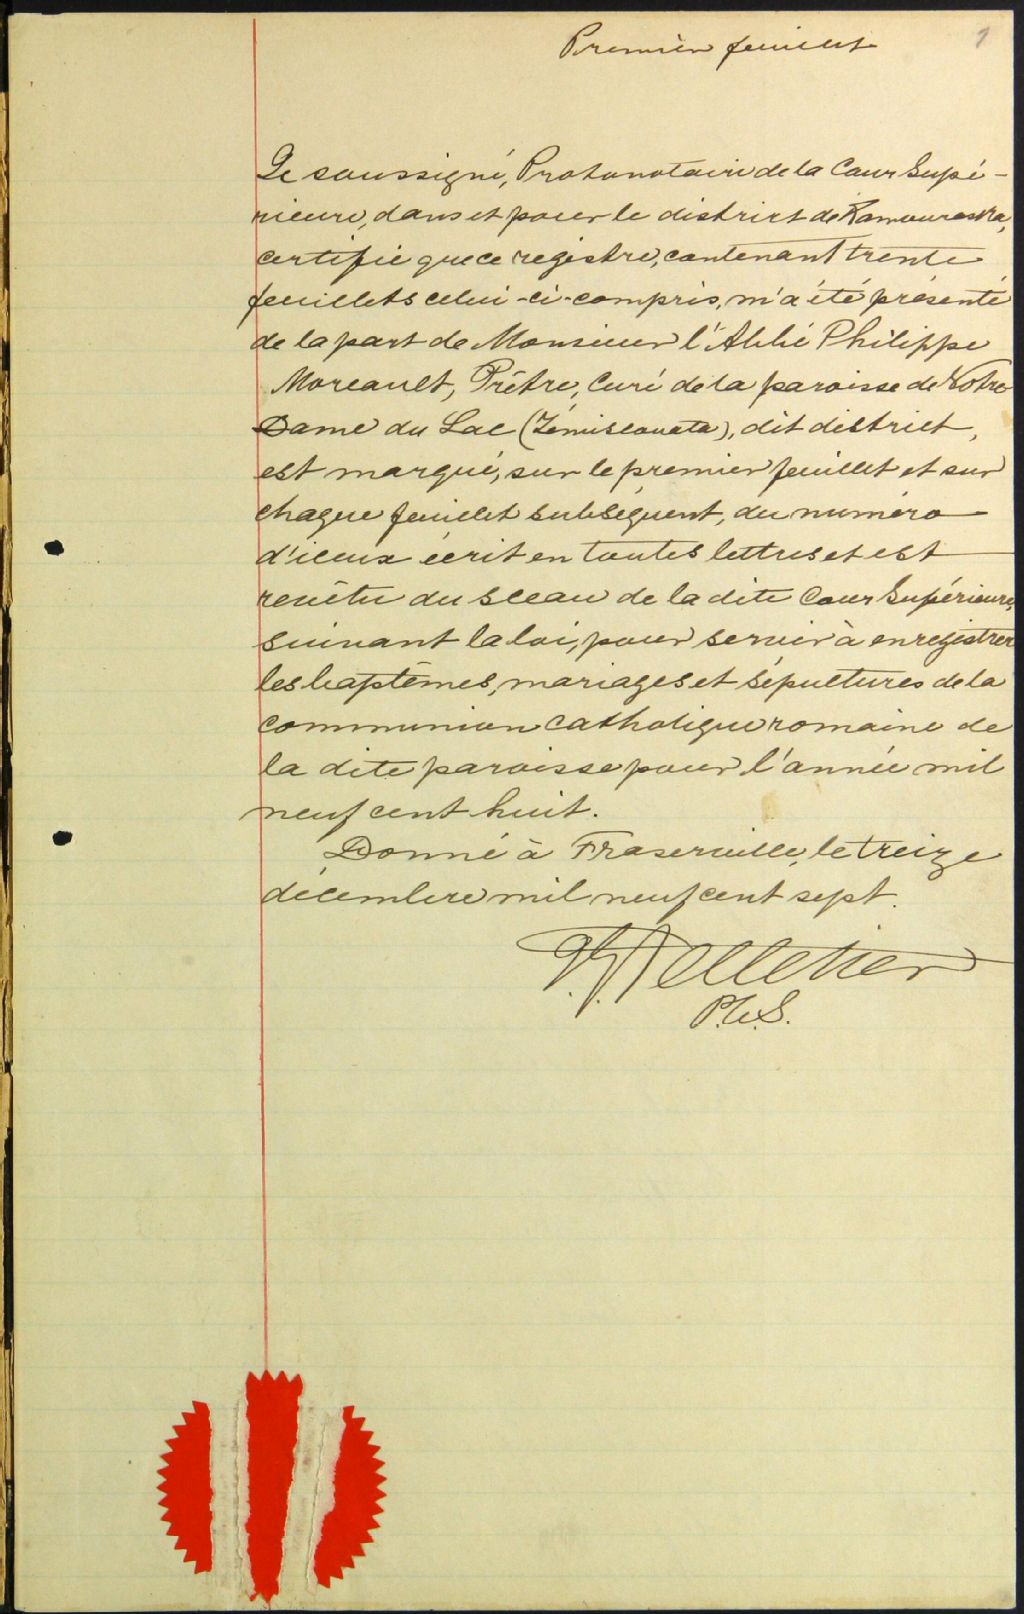 Premier feuillet
1
Le soussigné, Protonotaire de la Cour Supé-
rieure, dans et pour le district de Kamouraska,
certifie que ce registre, contenant trente
feuillets celui-ci-compris, m'a été présenté
de la part de Monsieur l'Abbé Philippe
Moreault, Prêtre, Curé de la paroisse de Notre
Dame du Lac (Témiscouata), dit district,
est marqué, sur le premier feuillet et sur
chaque feuillet subséquent, du numéro
d'iceux écrit en toutes lettres et est
revêtu du sceau de la dite Cour Supérieure,
suivant la loi, pour servir à enregistrer
les baptêmes, mariages et sépultures de la
communion catholique romaine de
la dite paroisse pour l'année mil
neuf cent huit.
Donné à Fraserville, le treize
décembre mil neuf cent sept.
Pelletier
P.C.S.